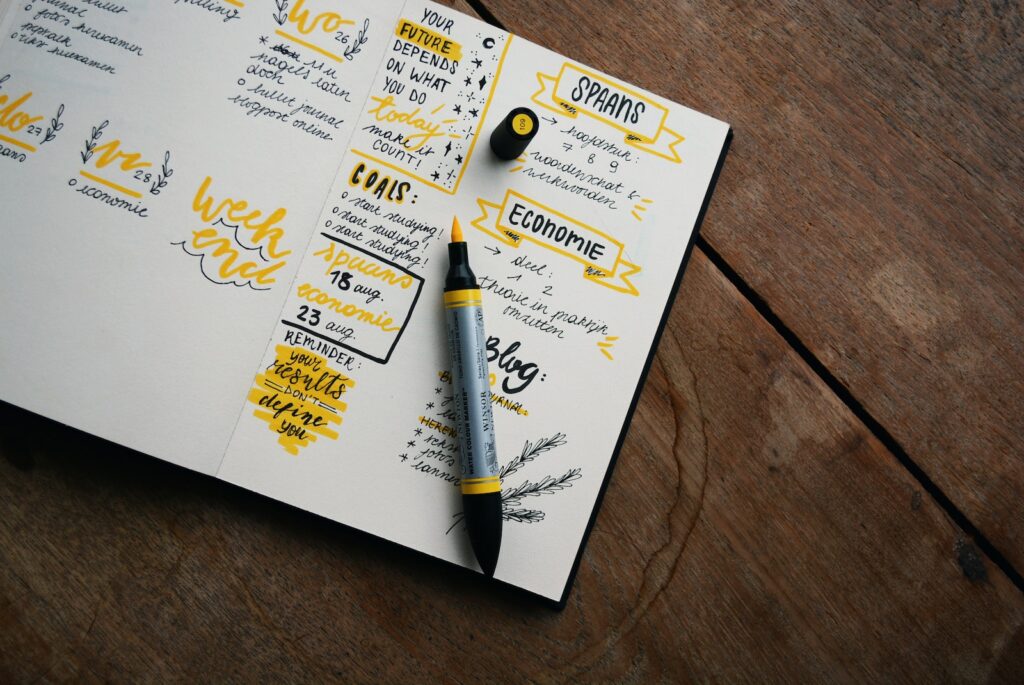 bullet
journal
○ foto's herexamen
○ herexamen
wo 26
* nagels laten
doen
○ bullet journal
blogpost online
do 27
vr 28
○ economie
week
end
YOUR
FUTURE
DEPENDS
ON WHAT
YOU DO
today
make it
COUNT!
GOALS:
○ start studying!
○ start studying!
○ start studying!
spaans
18 aug.
economie
23 aug.
REMINDER:
your
results
DON'T
define
you
109
SPAANS
→ hoofdstuk:
7 8 9
woordenschat &
werkwoorden
ECONOMIE
→ deel:
1 2
theorie in praktijk
omzetten
Blog:
JOURNAL:
HEREX
* tekst
* foto's
* lannen
WATER COLOUR MARKER
WINSOR